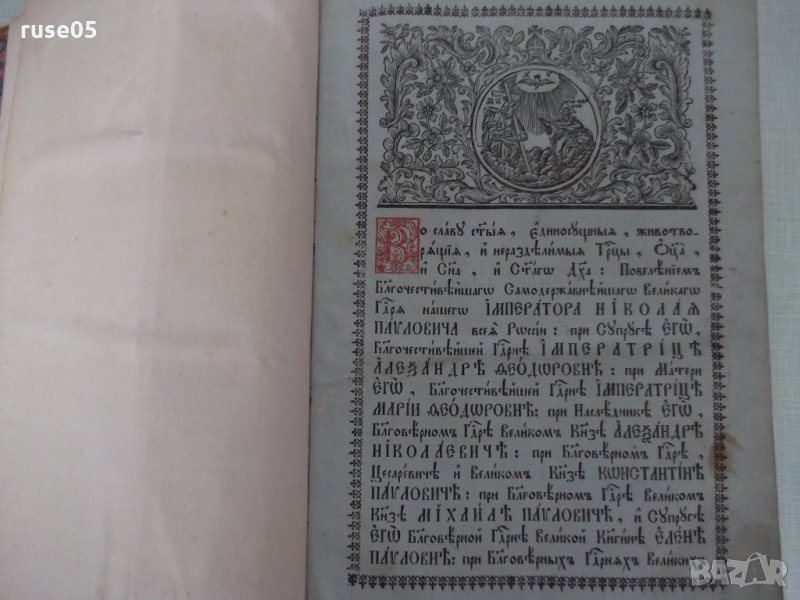 ruse05
Во славу ст҃ыя, Единосущныя, животво-
рящїя, и нераздѣлимыя Трⷪ҇цы, Оц҃а,
и Сн҃а, и Ст҃агѡ Дх҃а: Повелѣнїемъ
Бл҃гочестивѣйшагѡ Самодержавнѣйшагѡ Великагѡ
Гдⷭ҇ря нашегѡ ІМПЕРАТОРА НІКОЛАѦ
ПАѴЛОВИЧА всеѧ̀ Рѡссїи: при Сꙋпрꙋгѣ ЕГѠ̀,
Бл҃гочестивѣйшей Гдⷭ҇рнѣ ІМПЕРАТРІЦѢ
АЛЕѮАНДРѢ ѲЕОДѠРОВНѢ: при Матери
ЕГѠ̀, Бл҃гочестивѣйшей Гдⷭ҇рнѣ ІМПЕРАТРІЦѢ
МАРІИ ѲЕОДѠРОВНѢ: при Наслѣдникѣ ЕГѠ̀,
Бл҃говѣрномъ Гдⷭ҇рѣ Великомъ Кн҃зѣ АЛЕѮАНДРѢ
НІКОЛАЕВИЧѢ: при Бл҃говѣрномъ Гдⷭ҇рѣ,
Цесаревичѣ и Великомъ Кн҃зѣ КѠНСТАНТІНѢ
ПАѴЛОВИЧѢ: при Бл҃говѣрномъ Гдⷭ҇рѣ Великомъ
Кн҃зѣ МІХАИЛѢ ПАѴЛОВИЧѢ, и Сꙋпрꙋгѣ
ЕГѠ̀ Бл҃говѣрной Гдⷭ҇рнѣ Великой Кн҃гинѣ ЕЛЕНѢ
ПАѴЛОВНѢ: при Бл҃говѣрныхъ Гдⷭ҇рняхъ Великихъ
BAZAR